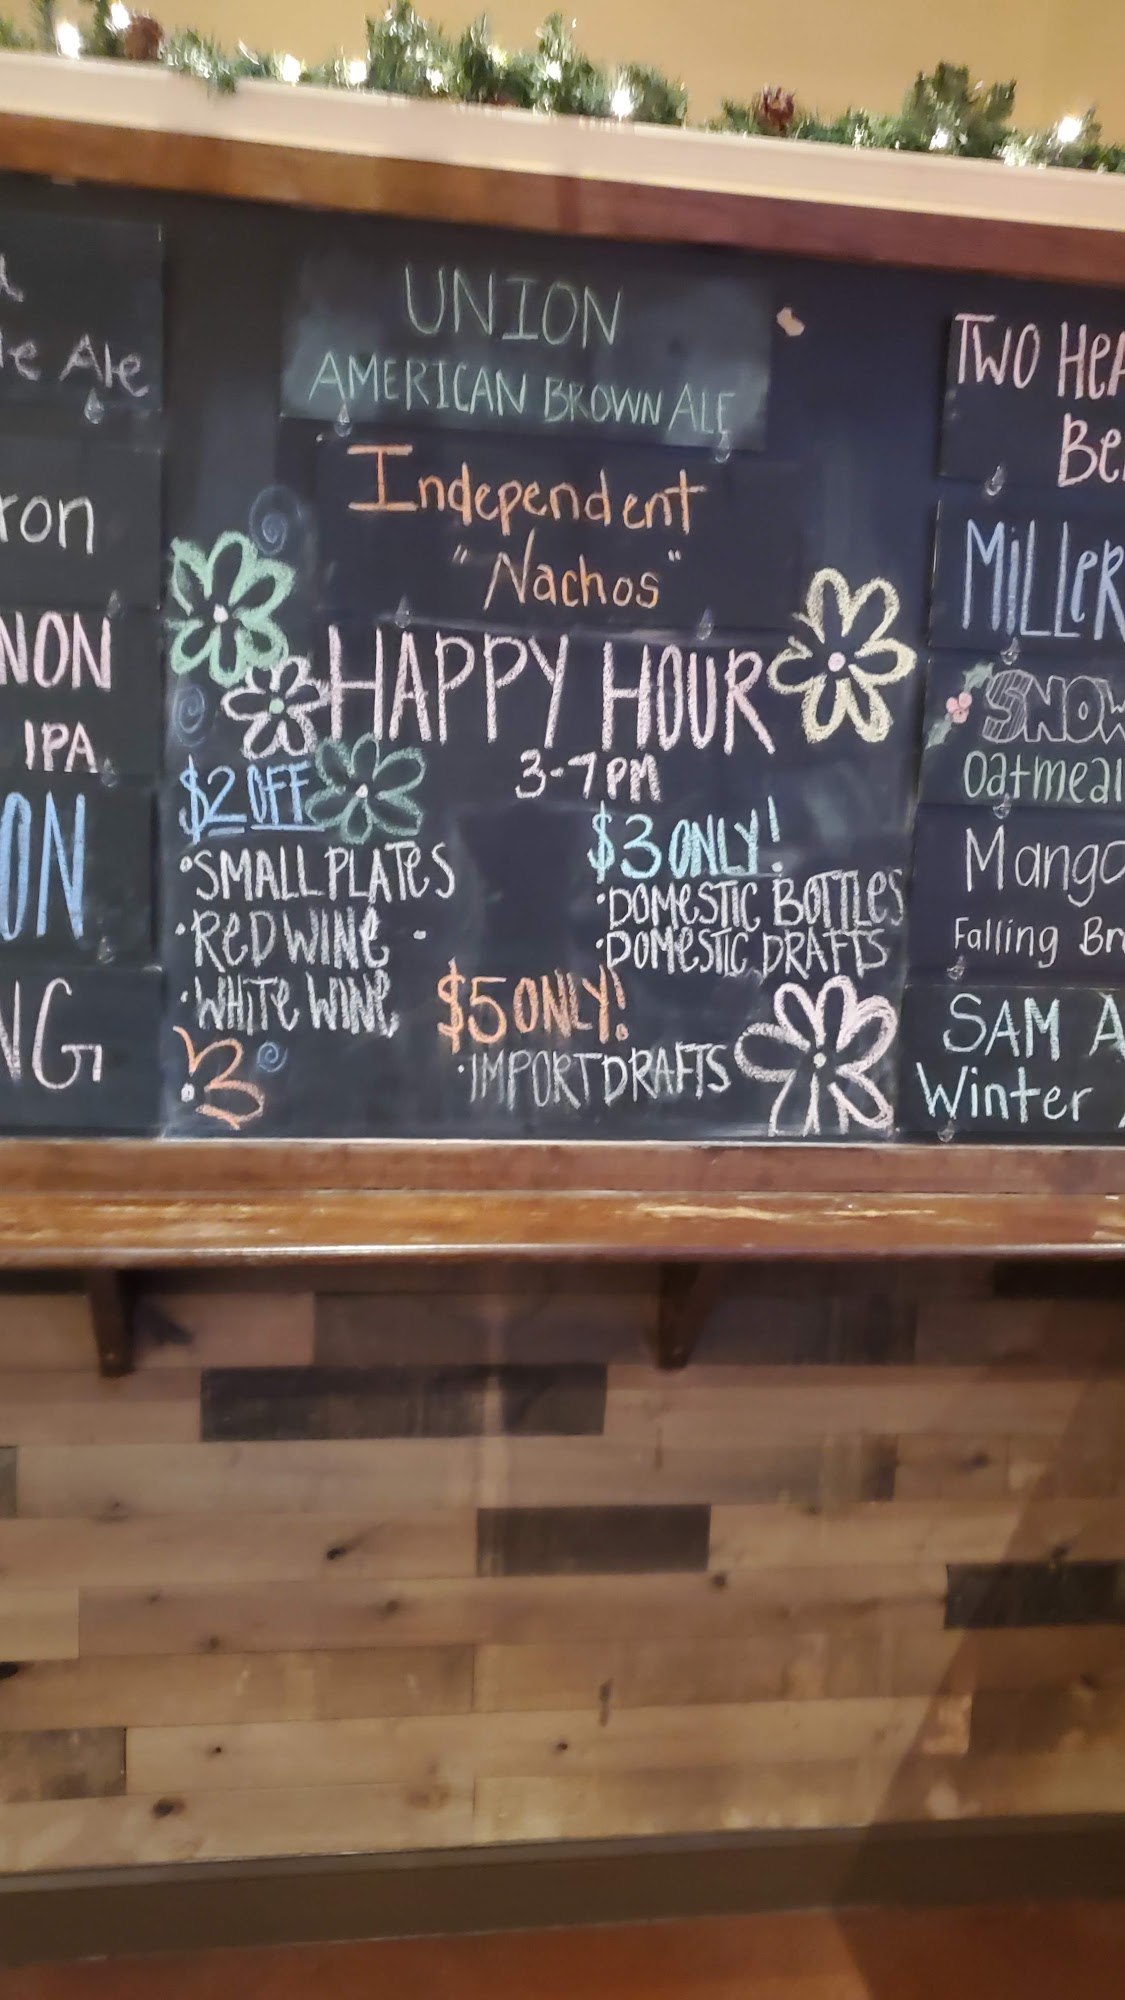 Ale
NON
IPA
ON
NG
UNION
AMERICAN BROWN ALE
Independent
"Nachos"
HAPPY HOUR
3-7PM
$2 OFF
•SMALL PLATES
•RED WINE -
•WHITE WINE
$3 ONLY!
•DOMESTIC BOTTLES
•DOMESTIC DRAFTS
$5 ONLY!
•IMPORT DRAFTS
TWO HEA
Be
MILLER
SNOW
Oatmeal
Mango
Falling Br
SAM A
Winter